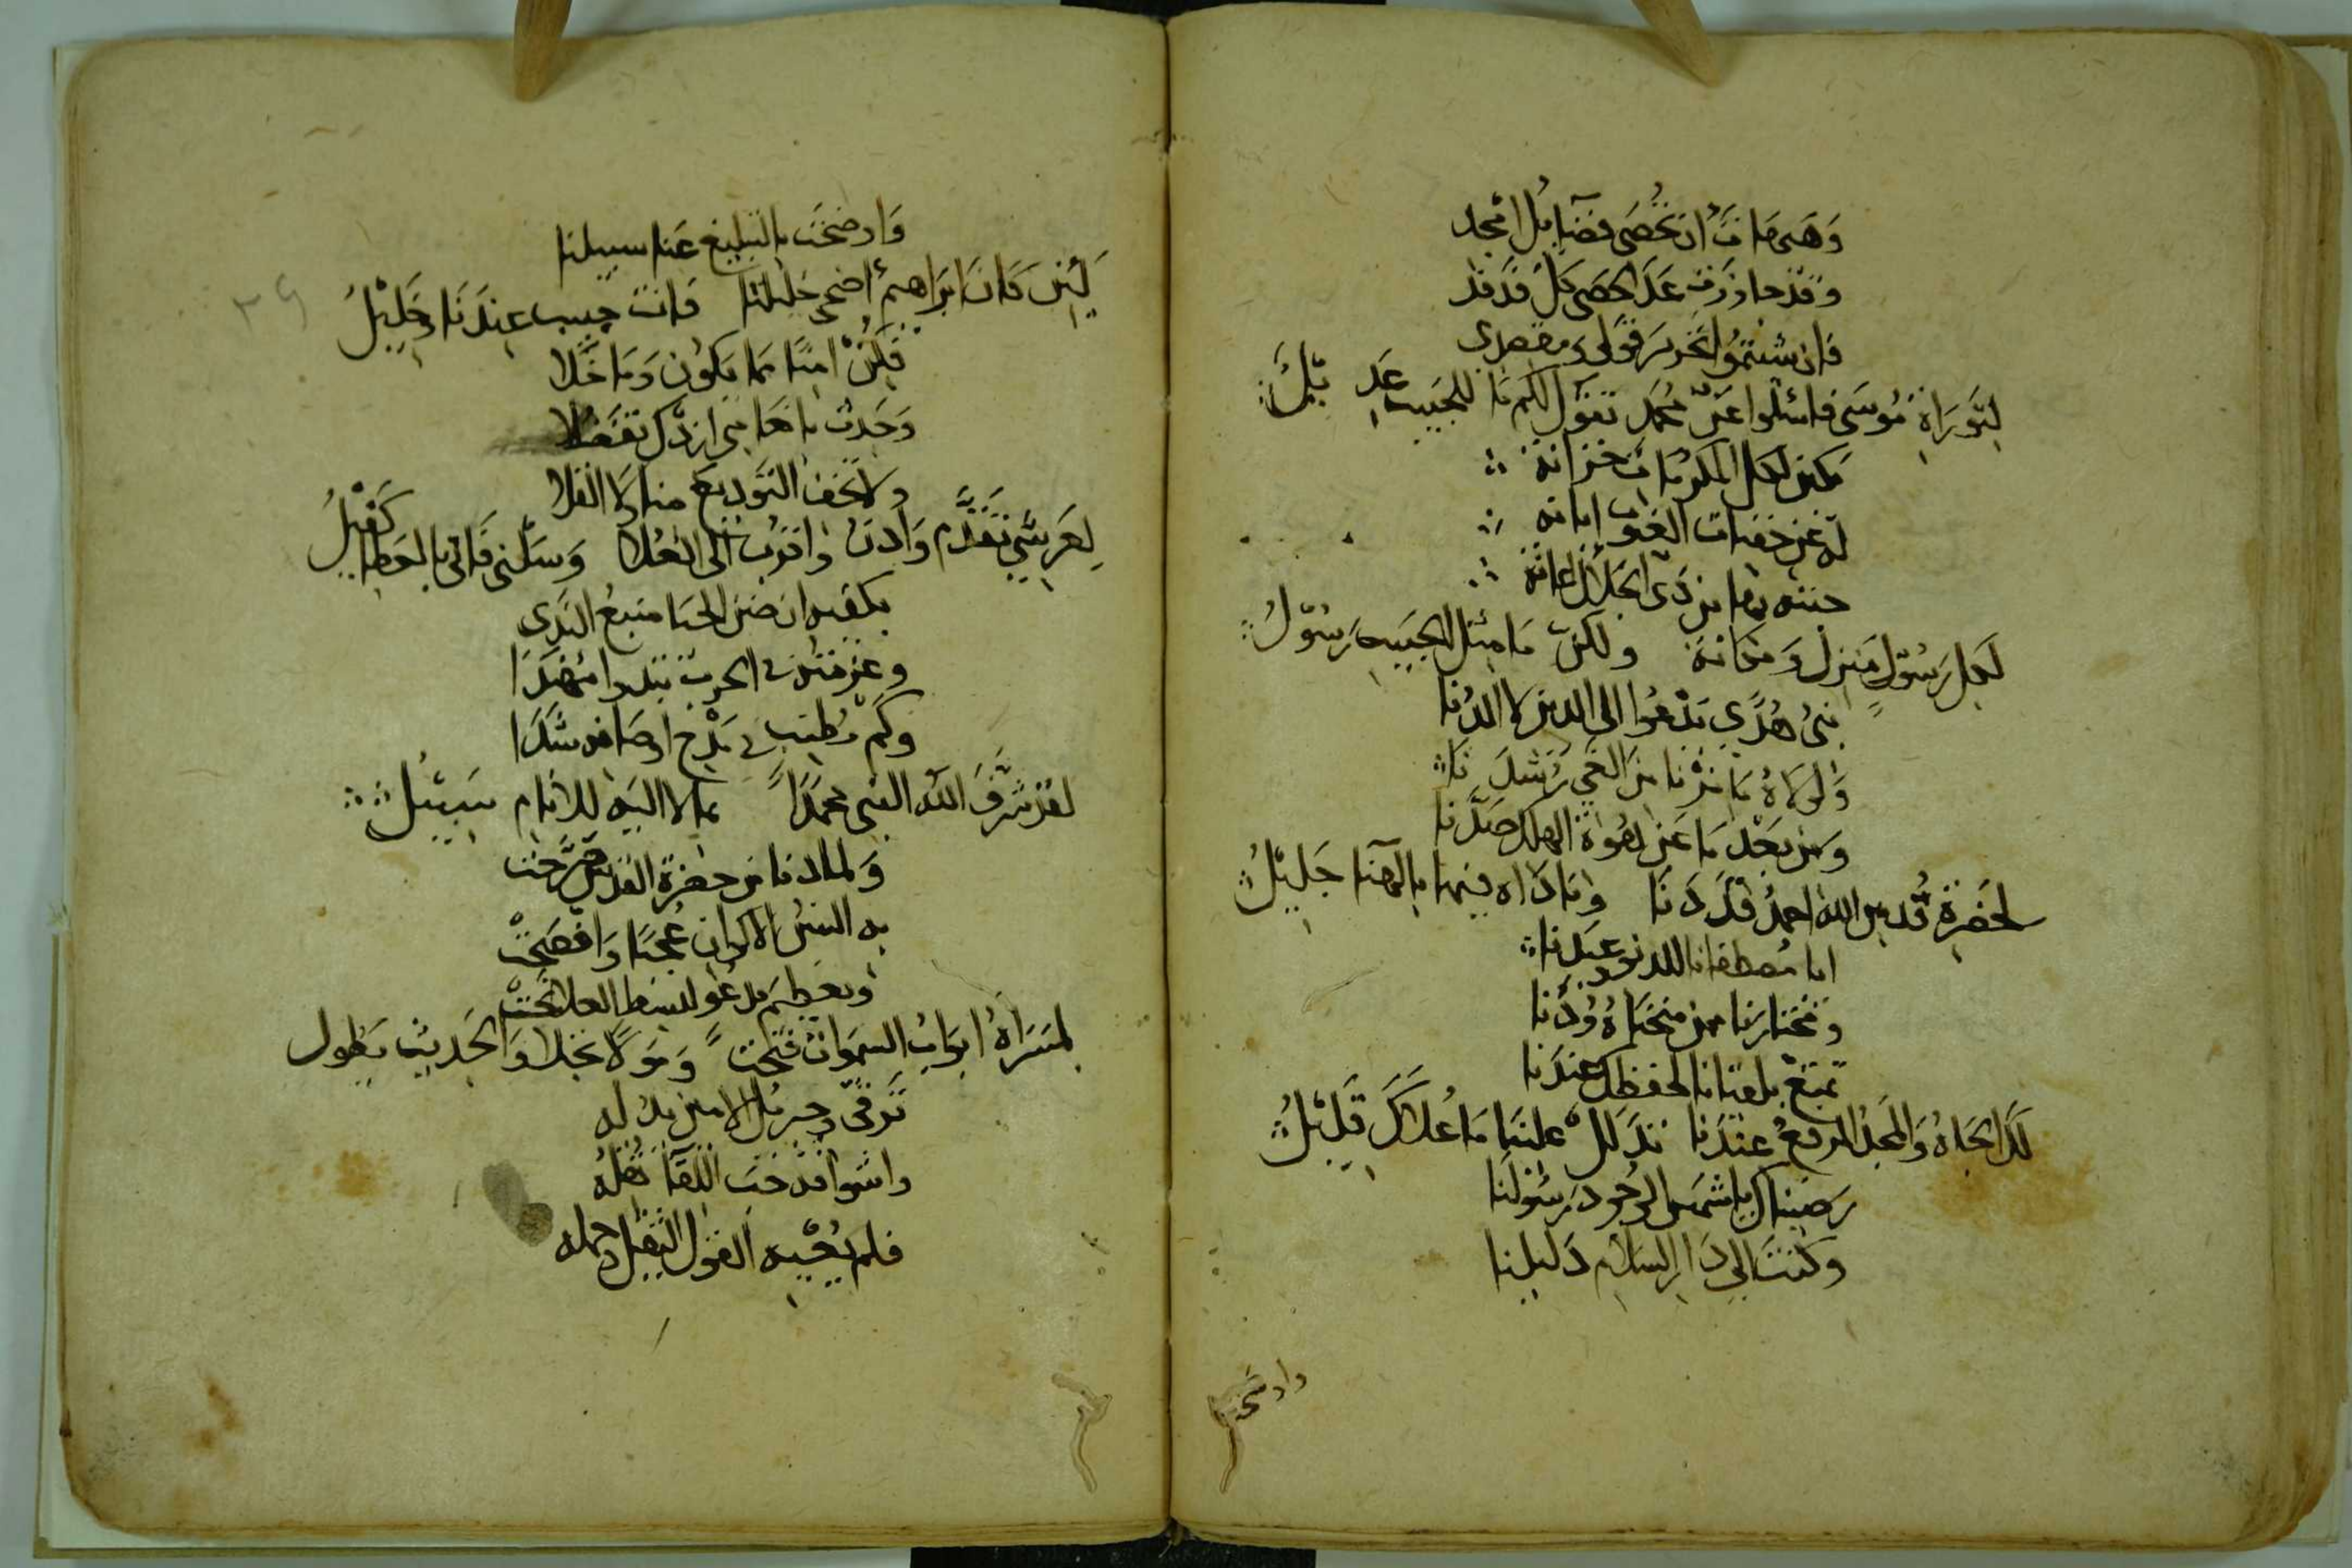 وَهَيهَاتَ ان تُحْصَى فضَآيلُ امْجد
وقدْ جاوزَت عَدَّ الحَصَى كلّ فَدفد
فان شئتُمُوا تحرير قولى ومقصدى
لتَورَاةَ مُوسَى فاسْئلوا عَن محمَّد تقول لكم مَا للحَبيب عَدِ يْلُ
مكين لكل المكرمَات خزانة
له عن خفيات الغيوب ابانه
جنته بها من ذى الجَلال اعانَة
لكل رَسُولٍ منزل وَمكانة ولكنْ مَا مثل الحَبيب رَسُوْلُ
نبىُ هُدًى يَدْعُوا الى الدين لا الدُنا
وَلولاهُ مَا نزْنا من الغَي رُشدَنا
وَمن بَعْد مَا عَن هُوة الهلك صَدَّنا
لحَضْرة قُدس الله احمدُ قَدْ دَنا وانادَاه فيها بالهَنا جَليْلُ
ايا مصطفانا للدنو عَبَدنا
ومُختارنا من منحَناهُ وُدَّنا
تمتعْ بلقيانا لحفظك عندَنا
لكَ الجَاهُ وَالمَجْد الرفيعُ عندَنا تدَلل عَلينا مَا عُلاكَ قَليْلُ
رَضينَاك يا شمسَ الوجُود رَسُولنا
وكنتَ الى دَار السَلام دَليلنا
واوضحت
وَاوضَحْتَ بالتبليغ عَنا سبيلنا
لَئِن كَانَ ابرَاهيمُ اضحى خليلنا فانت حبيب عندَنا وخَليْلُ
٣٩
فكنْ امنًا مما يكون وَمَا خَلا
وَحَدث بانعَامى ازدْك تفضلا
ولا تخف التَوديع منا ولا القلا
لعَرشي تقَدَّم وَادنُ واقترب الى العُلا وَسَلنى فَانى بالعَطا كَفيْلُ
يكفيه ان ضن الحيا منبعُ النَدى
وعزمته فى الحرب تبْدوا مُهندَا
وكمْ مُطنب فى مَدْح اوصَافه شَدَا
لقد شرَّفَ الله النبى محمدًا بما لا اليه للانام سَبيْلُ
وَلما دنا من حضرة القدس صَرَّحَت
به السنُ الاكوان عُجْبًا وَافصَحَتْ
وبعظيم مدعُو لبسط العلا نَحَتْ
لمسَرَاهُ ابوَابُ السَموَات فتحَتْ وَمَولاهُ نجلا وَالحَديث يَطول
تَرقّى وجبريل الامين بدُ له
واشواقه حَثت اللقَآ نقلهُ
فلم يُعْيِيه القول الثقيل وحمله